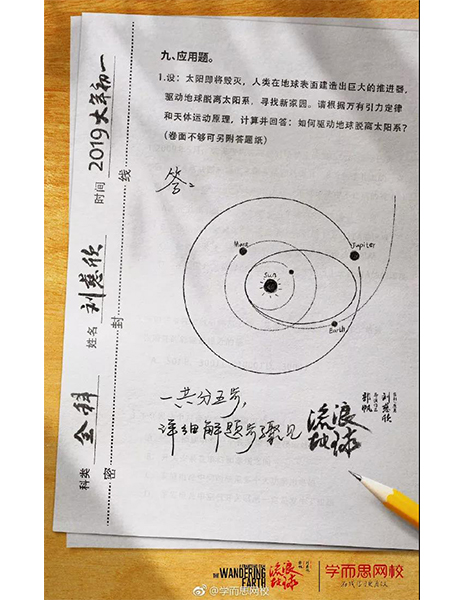 九、应用题。
1.设：太阳即将毁灭，人类在地球表面建造出巨大的推进器，
驱动地球脱离太阳系，寻找新家园。请根据万有引力定律
和天体运动原理，计算并回答：如何驱动地球脱离太阳系？
（卷面不够可另附答题纸）
时间 2019大年初一
姓名 刘慈欣
科类 全科
密 封 线
答：
Mars
Jupiter
Sun
Earth
一共分五步，
详细解题步骤见
流浪
地球
刘慈欣
郭帆
THE WANDERING
EARTH
流浪
地球
学而思网校
@学而思网校